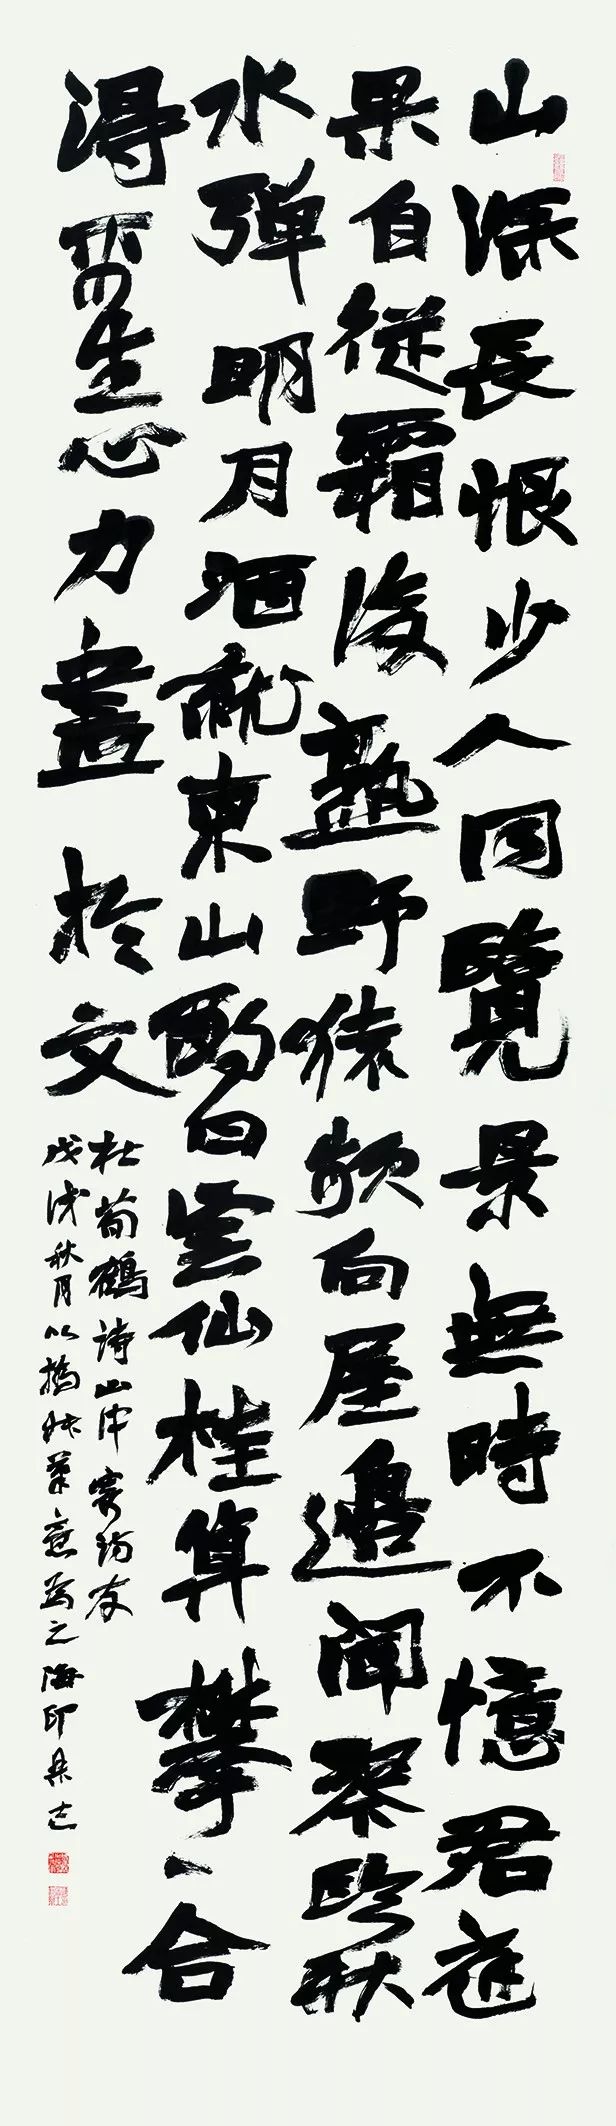 山深長恨少人同覽景無時不憶君庭
果自從霜後熟野猿頻向屋邊聞琴臨秋
水彈明月酒就東山酌白雲仙桂算攀丶合
得平生心力盡於文
杜荀鶴詩山中寄詩友
戊戌秋月以筆意為之海印